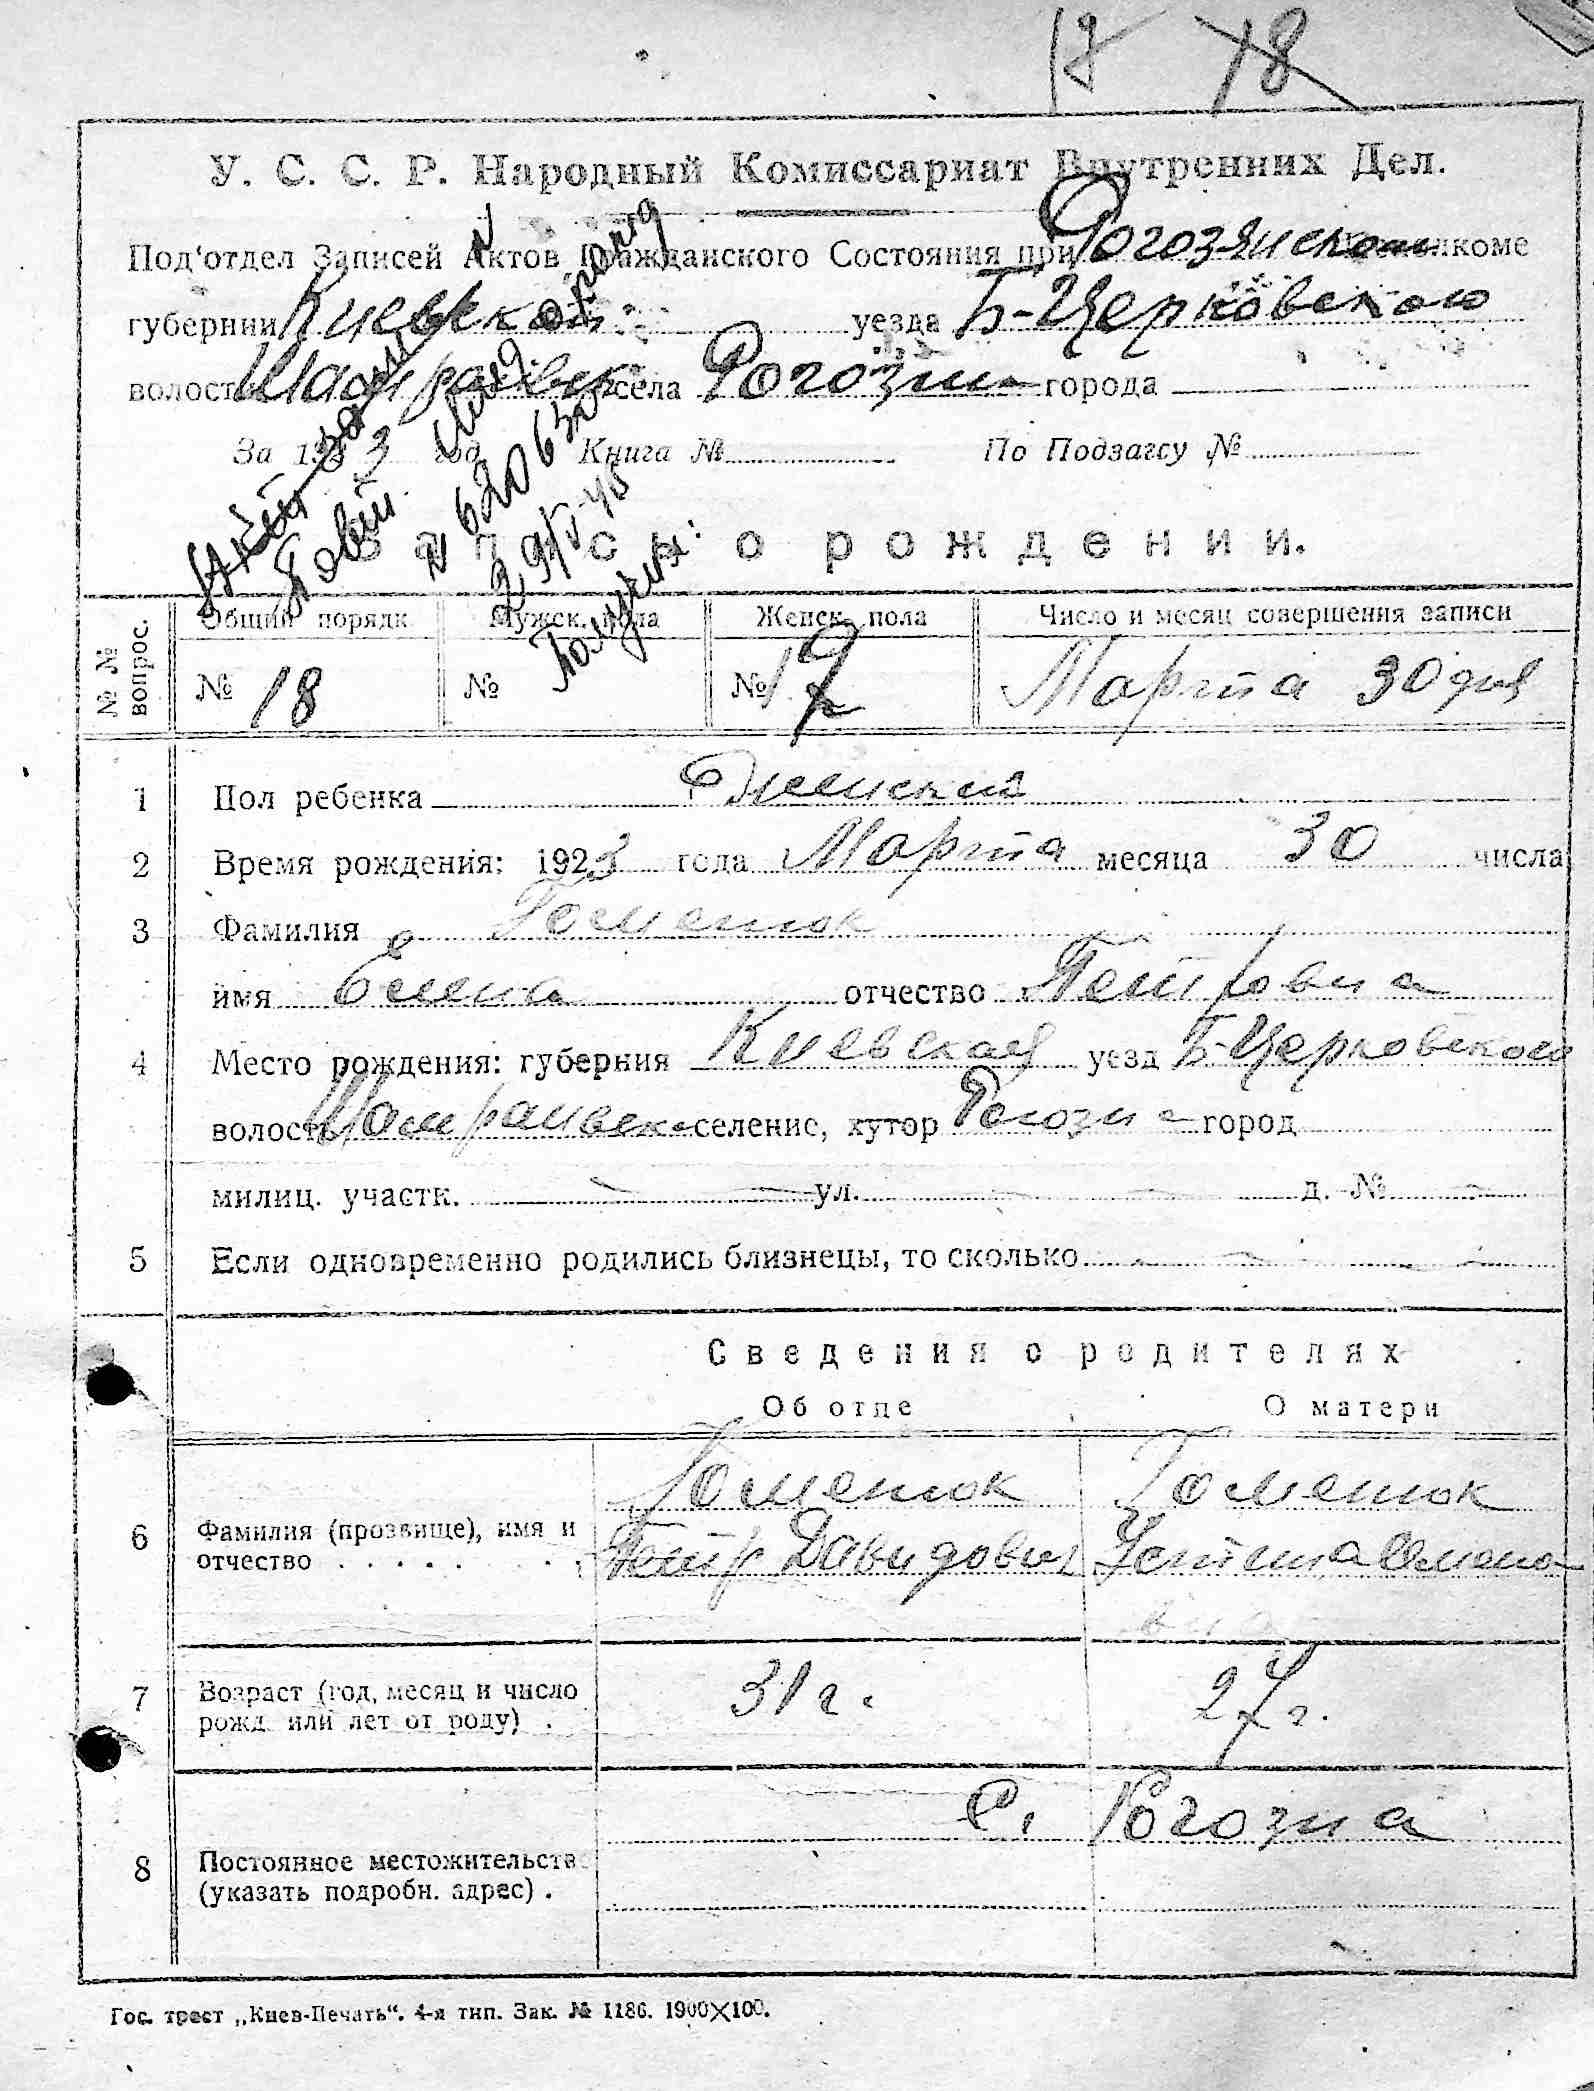 18
У. С. С. Р. Народный Комиссариат Внутренних Дел.
Под'отдел Записей Актов Гражданского Состояния при Рогозянском
губернии Киевской уезда Б-Церковского
волости села Рогозни города
За 1923 год Книга № По Подзагсу №
Запись о рождении.
№ № вопрос. Общий порядк Мужск. пола Женск. пола Число и месяц совершения записи
№ 18 № № Марта 30 дня
1 Пол ребенка Женский
2 Время рождения: 1923 года Марта месяца 30 числа
3 Фамилия Гоменюк
имя Елена отчество Петровна
4 Место рождения: губерния Киевская уезд Б-Церковского
волость селение, хутор Рогозна город
милиц. участк. ул. д. №
5 Если одновременно родились близнецы, то сколько
Сведения о родителях
Об отце О матери
Гоменюк Гоменюк
6 Фамилия (прозвище), имя и отчество Петр Давидович Устина Семено
вна
7 Возраст (год, месяц и число рожд. или лет от роду) . 31 г. 27 г.
с. Рогозна
8 Постоянное местожительств
(указать подробн. адрес) .
Гос. трест „Киев-Печать“. 4-я тип. Зак. № 1186. 1900×100.